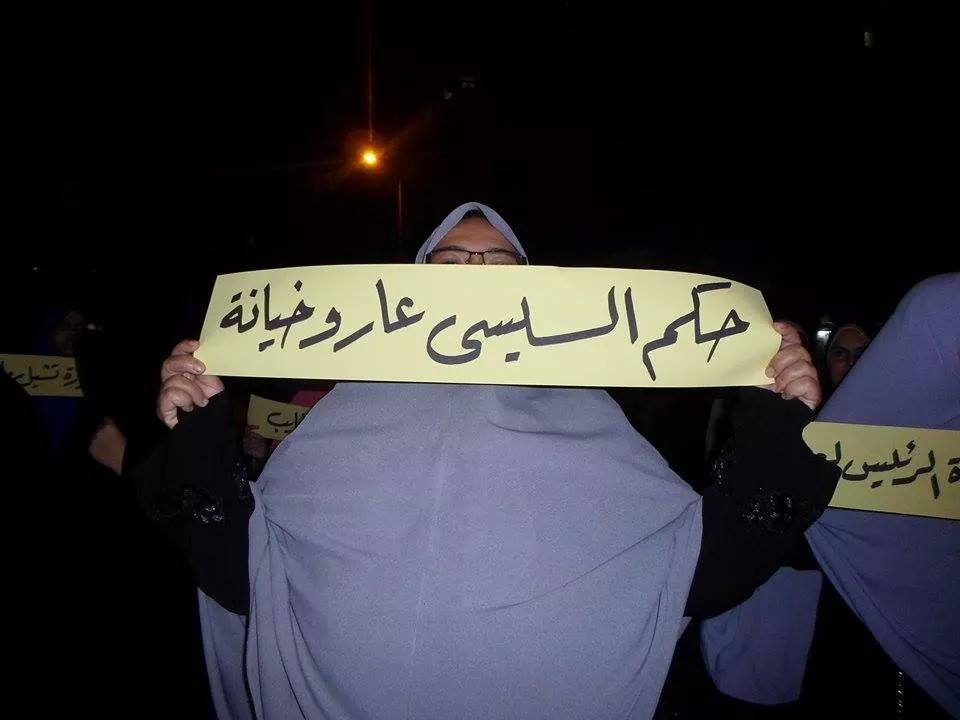 حكم السيسى عار وخيانة
تشيل
الرئيس